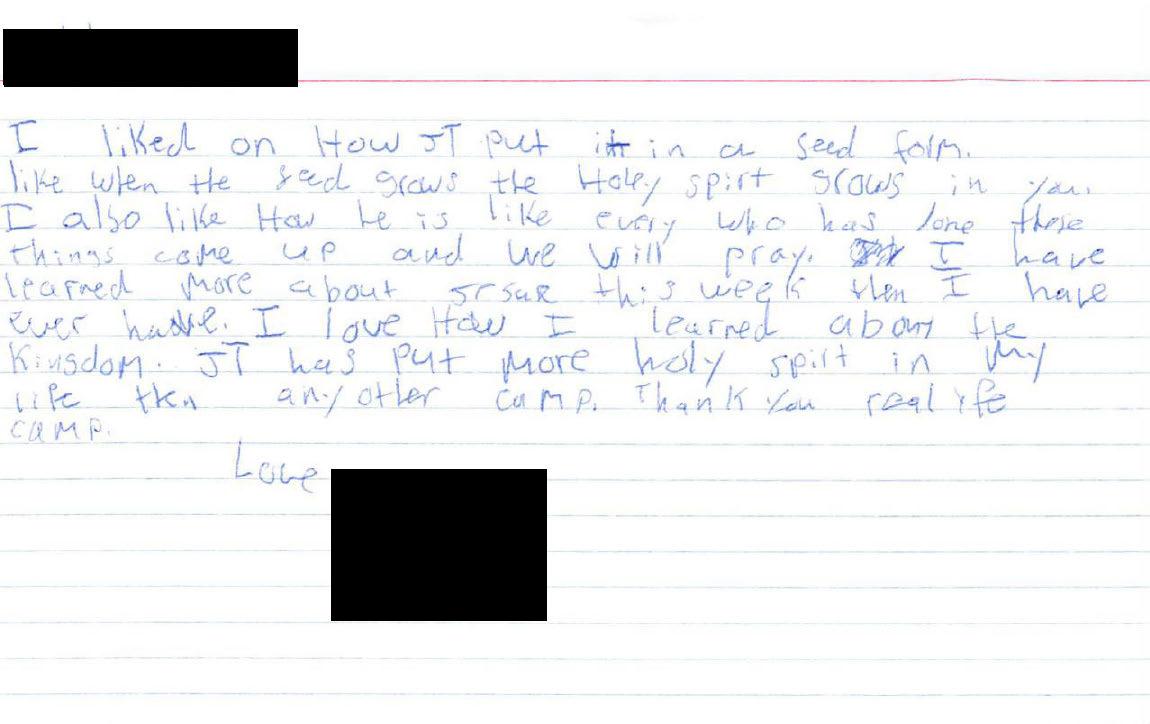 I liked on How JT put it in a seed form.
like when the seed grows the Holey spirt grows in you.
I also like How he is like every who has done these
things come up and we will pray. I have
learned more about this week then I have
ever have. I love How I learned about the
Kingdom. JT has put more holy spirt in my
life then any other camp. Thank you real life
camp.
Love